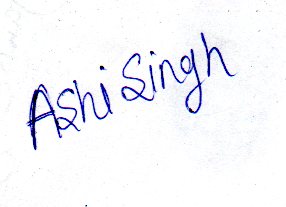 Ashi Singh